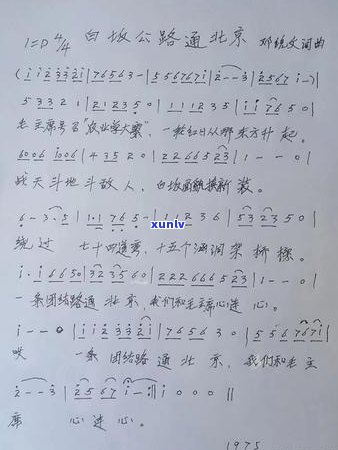 1=D 4/4 白坡公路通北京 邓锐文词曲
(i i 2 3 3 2 i | 7 6 5 6 3 - | 5 5 6 7 6 7 i | 2 - - 3 | 2 5 6 7 i -)|
5 3 3 2 1 | 2 1 2 3 5 0 | 1 1 1 2 3 5 | i i 7 6 5 0 |
毛主席号召"农业学大寨", 一轮红日从那东方升起。
6 0 0 6 i 0 0 6 | 4 3 5 2 0 | 2 2 6 6 5 2 3 | 1 - - 0 |
战天斗地斗敌人, 白坡面貌换新装。
6 - 3 . 5 | 1 . 1 7 6 5 - | 1 1 2 3 6 | 5 3 2 3 5 0 |
绕过 七十四道弯, 十五个涵洞架桥樑。
i . i 6 6 5 0 | 3 2 3 5 6 0 | 2 2 2 6 6 6 5 2 3 | 1 - - 0 |
一条团结路通北京, 我们和毛主席心连心。
i - - 0 | i i 2 3 3 2 i | 7 6 5 6 3 0 | 5 5 6 7 6 7 i |
哎 一条团结路通北京, 我们和毛主
2 - - 3 | 2 5 6 7 i - :|| i 0 0 0 ||
席 心连心。
1975
xunlv